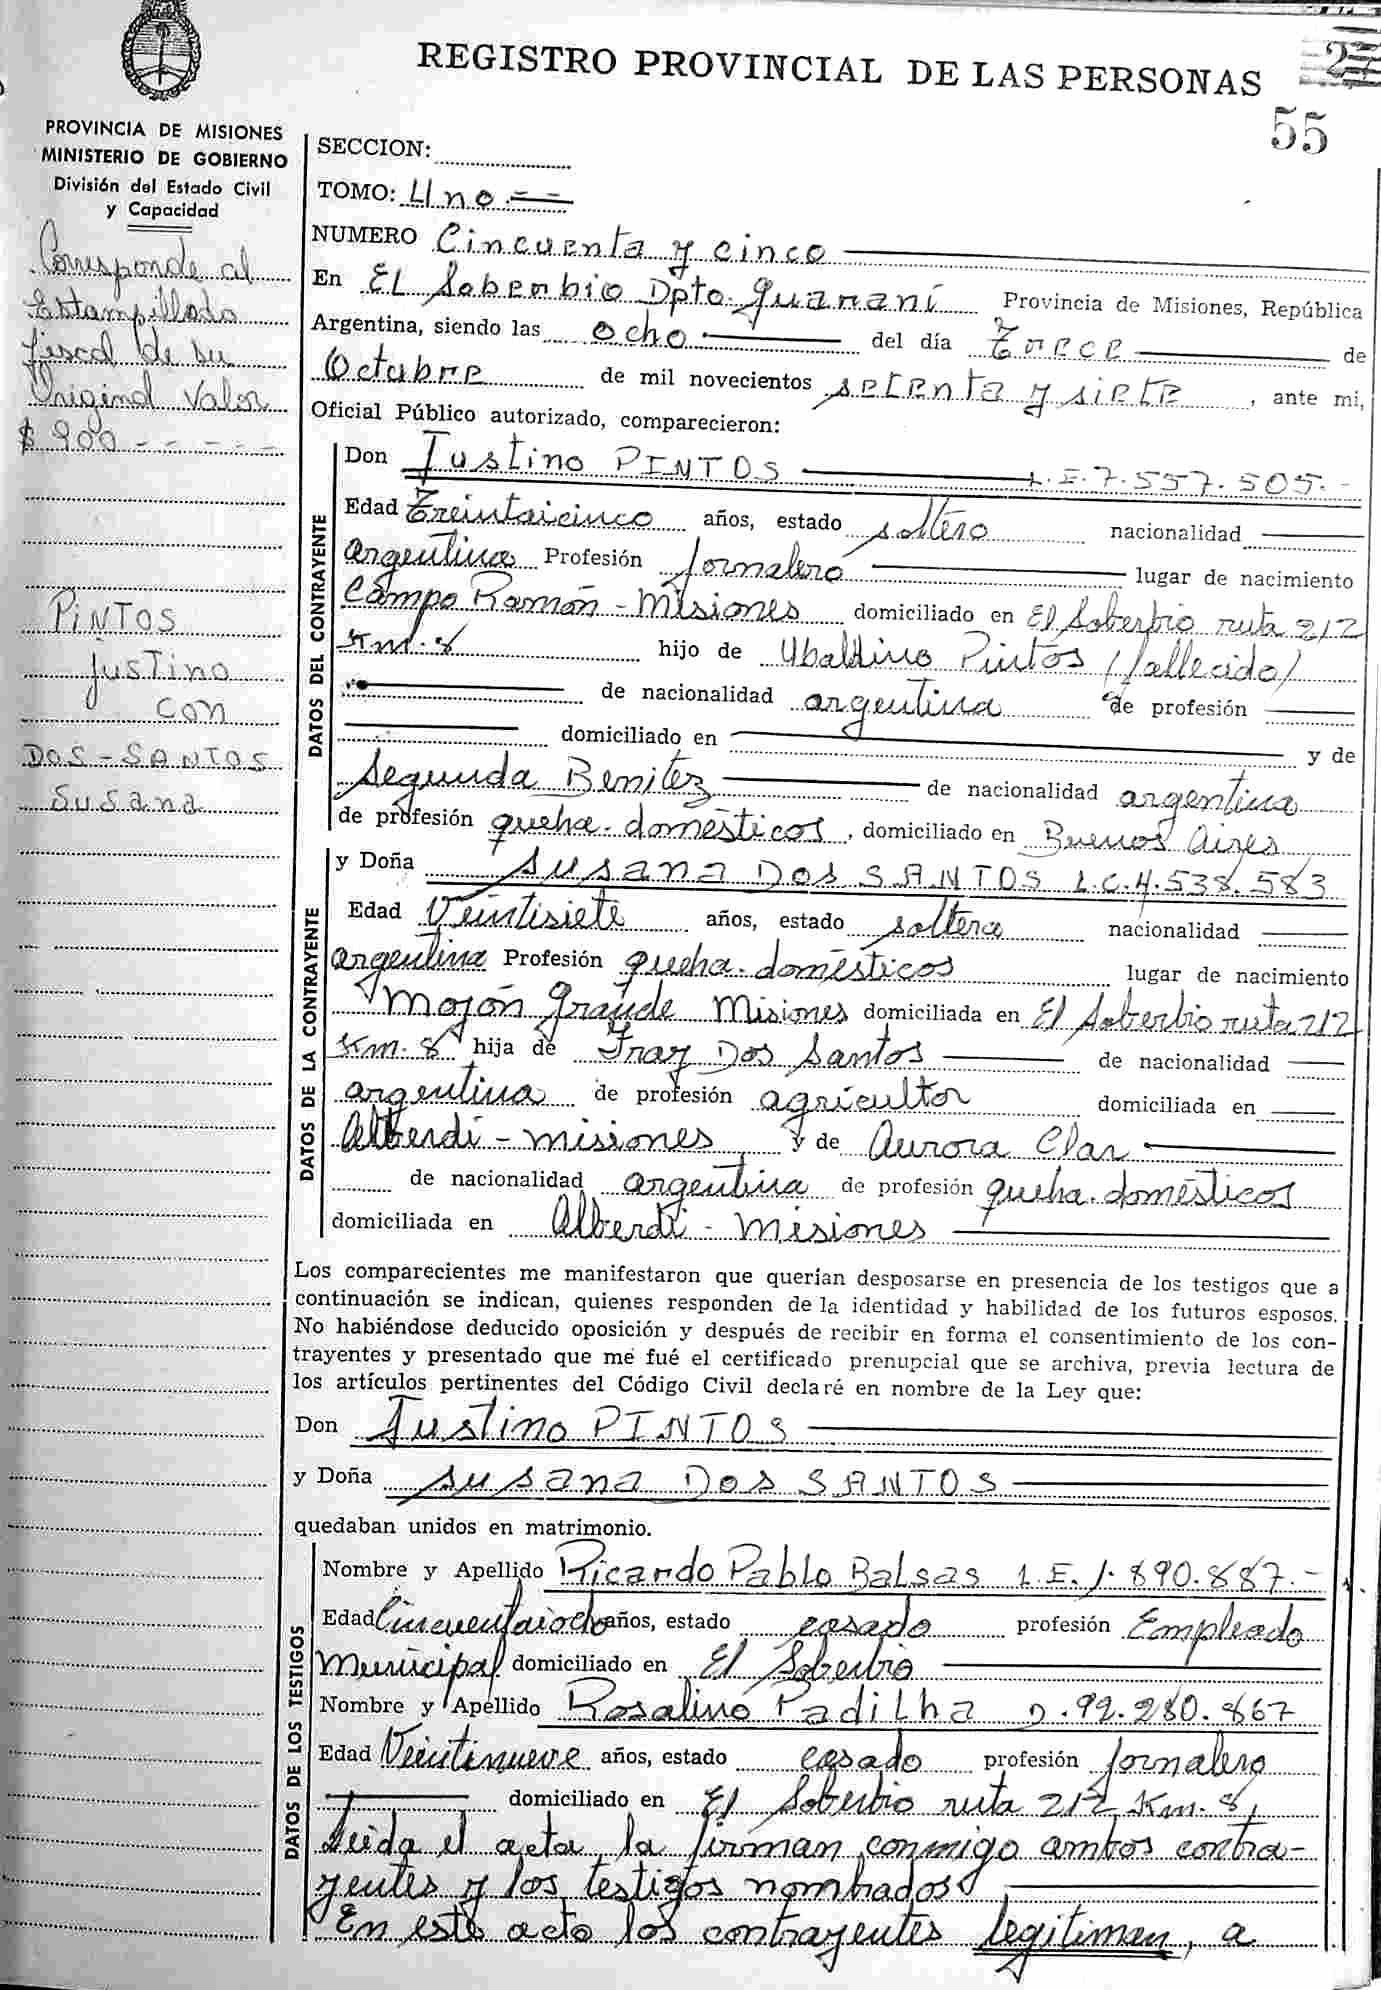 REGISTRO PROVINCIAL DE LAS PERSONAS
55
PROVINCIA DE MISIONES
MINISTERIO DE GOBIERNO
División del Estado Civil
y Capacidad
Corresponde al
Estampillado
fiscal de su
Original Valor
$ 900
PINTOS
Justino
con
DOS-SANTOS
Susana
SECCION:
TOMO: Uno.
NUMERO Cincuenta y cinco
En El Soberbio Dpto. Guaraní Provincia de Misiones, República
Argentina, siendo las ocho del día Trece de
Octubre de mil novecientos setenta y siete, ante mi,
Oficial Público autorizado, comparecieron:
DATOS DEL CONTRAYENTE
Don Justino PINTOS L.E.7.557.505.-
Edad Treintaicinco años, estado soltero nacionalidad
argentina Profesión Jornalero lugar de nacimiento
Campo Ramón - Misiones domiciliado en El Soberbio ruta 212
Km. 8 hijo de Ubaldino Pintos (fallecido)
de nacionalidad argentina de profesión
domiciliado en y de
Segunda Benitez de nacionalidad argentina
de profesión queha. domésticos, domiciliado en Buenos Aires
DATOS DE LA CONTRAYENTE
y Doña Susana DOS SANTOS L.C.4.538.583
Edad Veintisiete años, estado soltera nacionalidad
argentina Profesión queha. domésticos lugar de nacimiento
Mojón Grande Misiones domiciliada en El Soberbio ruta 212
Km. 8 hija de Dos Santos de nacionalidad
argentina de profesión agricultor domiciliada en
Alberdi - Misiones y de Aurora Clar
de nacionalidad argentina de profesión queha. domésticos
domiciliada en Alberdi - Misiones
Los comparecientes me manifestaron que querían desposarse en presencia de los testigos que a
continuación se indican, quienes responden de la identidad y habilidad de los futuros esposos.
No habiéndose deducido oposición y después de recibir en forma el consentimiento de los con-
trayentes y presentado que me fué el certificado prenupcial que se archiva, previa lectura de
los artículos pertinentes del Código Civil declaré en nombre de la Ley que:
Don Justino PINTOS
y Doña Susana DOS SANTOS
quedaban unidos en matrimonio.
DATOS DE LOS TESTIGOS
Nombre y Apellido Ricardo Pablo Balsas L.E.1.890.887.-
Edad Cincuentaiocho años, estado casado profesión Empleado
Municipal domiciliado en El Soberbio
Nombre y Apellido Rosalino Padilha D.92.280.867
Edad Veintinueve años, estado casado profesión Jornalero
domiciliado en El Soberbio ruta 212 Km. 8,
Leida el acta, la firman conmigo ambos contra-
yentes y los testigos nombrados
En este acto los contrayentes legitiman, a